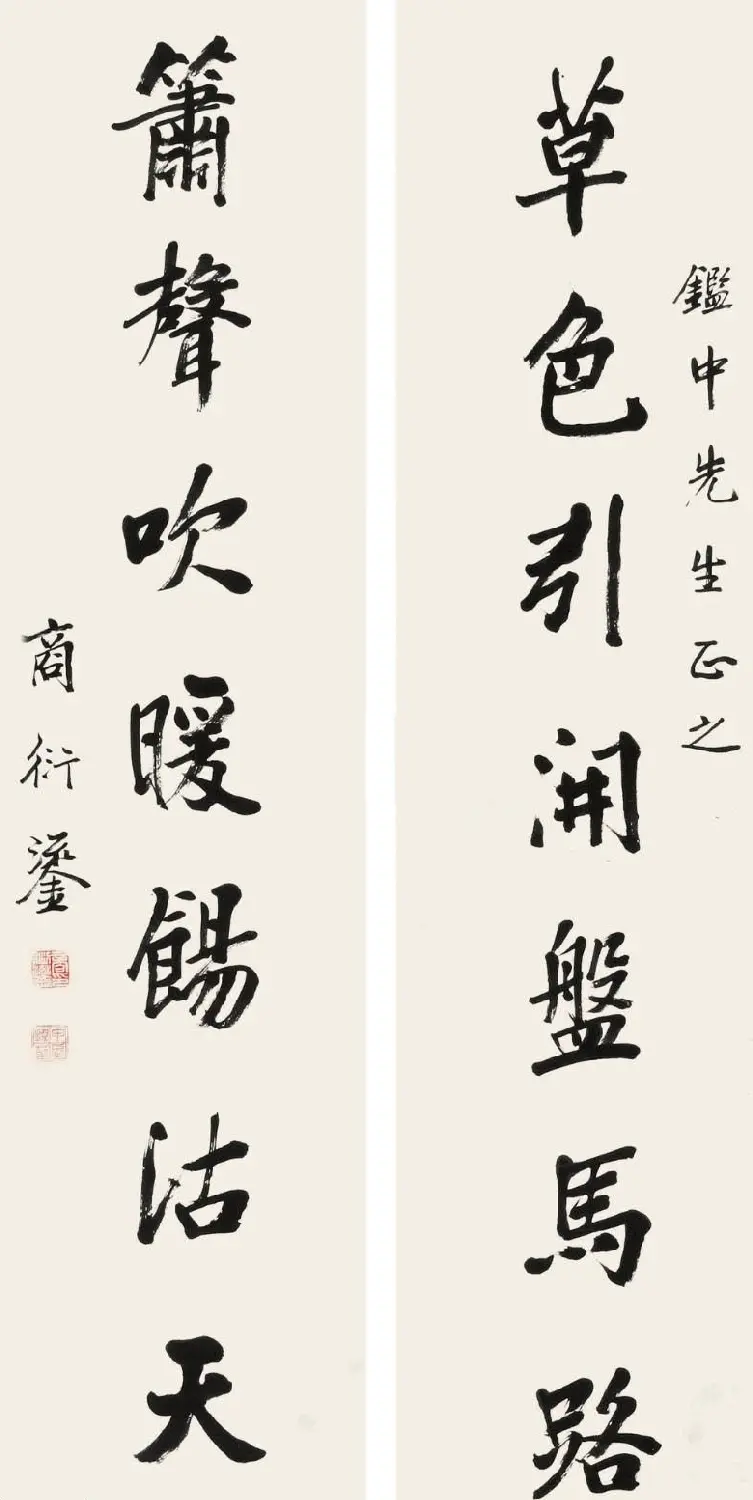 鑑中先生正之
草色引開盤馬路
簫聲吹暖餳沽天
商衍鎏